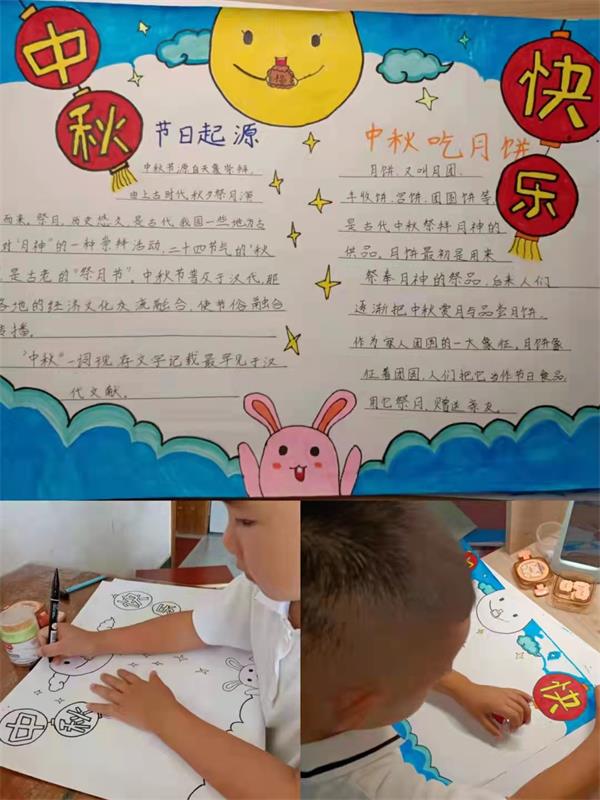 中秋
快乐
节日起源
中秋节源自天象崇拜,
由上古时代秋夕祭月演
而来。祭月,历史悠久,是古代我国一些地方古
对“月神”的一种崇拜活动,二十四节气的“秋
是古老的“祭月节”。中秋节普及于汉代,
各地的经济文化交流融合,使节俗融合
传播。
“中秋”一词现存文字记载最早见于汉
代文献。
中秋吃月饼
月饼、又叫月团、
丰收饼、宫饼、团圆饼等,
是古代中秋祭拜月神的
供品。月饼最初是用来
祭奉月神的祭品,后来人们
逐渐把中秋赏月与品尝月饼,
作为家人团圆的一大象征。月饼象
征着团圆,人们把它当作节日食品,
用它祭月、赠送亲友。
福
快
乐
中
秋
快